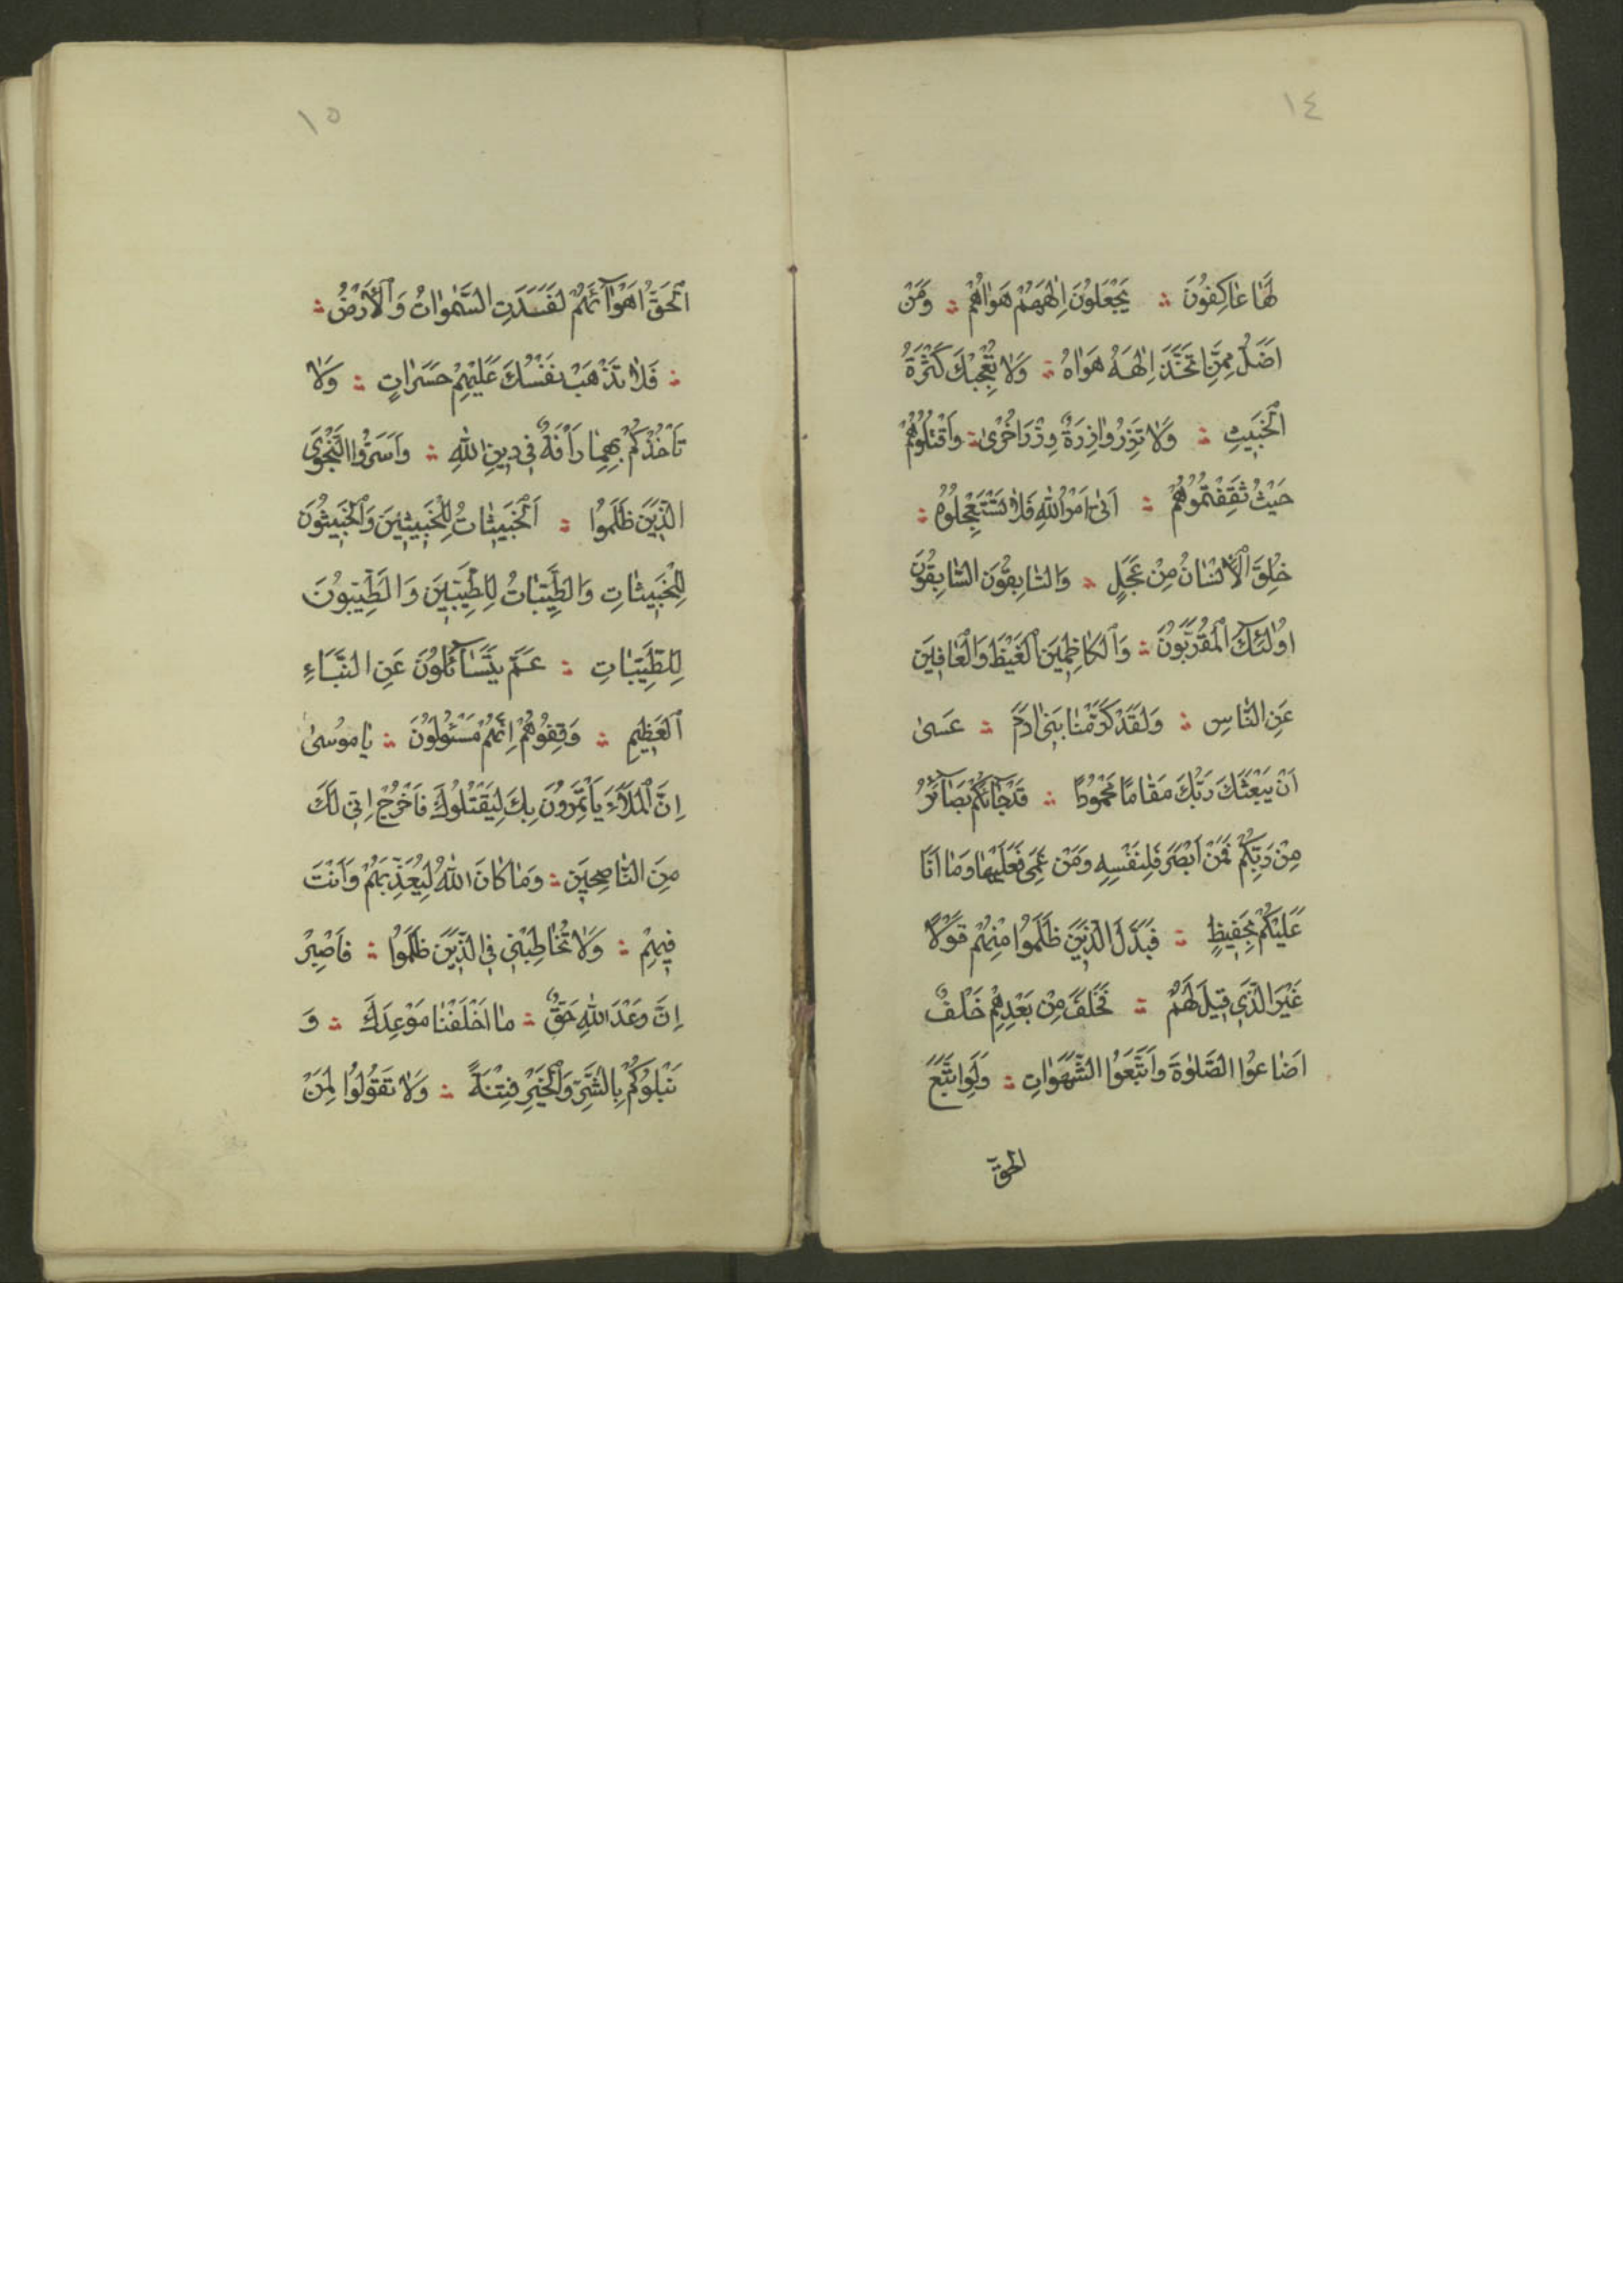 ١٤
لَهَا عَاكِفُونَ ؞ يَجْعَلُونَ اِلٰهَهُمْ هَوٰاهُمْ ؞ وَمَنْ
اَضَلُّ مِمَّنِ اتَّخَذَ اِلٰهَهُ هَوٰاهُ ؞ وَلَا تُعْجِبْكَ كَثْرَةُ
الْخَبِيثِ ؞ وَلَا تَزِرُ وٰازِرَةٌ وِزْرَ اُخْرىٰ ؞ وَاقْتُلُوهُمْ
حَيْثُ ثَقِفْتُمُوهُمْ ؞ اَتىٰ اَمْرُ اللّٰهِ فَلَا تَسْتَعْجِلُوهُ ؞
خُلِقَ الْاِنْسَانُ مِنْ عَجَلٍ ؞ وَالسَّابِقُونَ السَّابِقُونَ
اُولٰئِكَ الْمُقَرَّبُونَ ؞ وَالْكَاظِمِينَ الْغَيْظَ وَالْعَافِينَ
عَنِ النَّاسِ ؞ وَلَقَدْ كَرَّمْنَا بَنِي اٰدَمَ ؞ عَسىٰ
اَنْ يَبْعَثَكَ رَبُّكَ مَقَامًا مَحْمُودًا ؞ قَدْ جَآئَكُمْ بَصَآئِرُ
مِنْ رَبِّكُمْ فَمَنْ اَبْصَرَ فَلِنَفْسِهِ وَمَنْ عَمِيَ فَعَلَيْهَا وَمَا اَنَا
عَلَيْكُمْ بِحَفِيظٍ ؞ فَبَدَّلَ الَّذِينَ ظَلَمُوا مِنْهُمْ قَوْلًا
غَيْرَ الَّذِي قِيلَ لَهُمْ ؞ فَخَلَفَ مِنْ بَعْدِهِمْ خَلْفٌ
اَضَاعُوا الصَّلٰوةَ وَاتَّبَعُوا الشَّهَوَاتِ ؞ وَلَوِ اتَّبَعَ
الحقّ
١٥
الْحَقُّ اَهْوَآئَهُمْ لَفَسَدَتِ السَّمٰوَاتُ وَالْاَرْضُ ؞
؞ فَلَا تَذْهَبْ نَفْسُكَ عَلَيْهِمْ حَسَرَاتٍ ؞ وَلَا
تَأْخُذْكُمْ بِهِمَا رَأْفَةٌ فِي دِينِ اللّٰهِ ؞ وَاَسَرُّوا النَّجْوَى
الَّذِينَ ظَلَمُوا ؞ اَلْخَبِيثَاتُ لِلْخَبِيثِينَ وَالْخَبِيثُونَ
لِلْخَبِيثَاتِ وَالطَّيِّبَاتُ لِلطَّيِّبِينَ وَالطَّيِّبُونَ
لِلطَّيِّبَاتِ ؞ عَمَّ يَتَسَآئَلُونَ عَنِ النَّبَاءِ
الْعَظِيمِ ؞ وَقِفُوهُمْ اِنَّهُمْ مَسْئُولُونَ ؞ يَا مُوسىٰ
اِنَّ الْمَلَاءَ يَأْتَمِرُونَ بِكَ لِيَقْتُلُوكَ فَاخْرُجْ اِنِّي لَكَ
مِنَ النَّاصِحِينَ ؞ وَمَا كَانَ اللّٰهُ لِيُعَذِّبَهُمْ وَاَنْتَ
فِيهِمْ ؞ وَلَا تُخَاطِبْنِي فِي الَّذِينَ ظَلَمُوا ؞ فَاصْبِرْ
اِنَّ وَعْدَ اللّٰهِ حَقٌّ ؞ مَا اَخْلَفْنَا مَوْعِدَكَ ؞ وَ
نَبْلُوَكُمْ بِالشَّرِّ وَالْخَيْرِ فِتْنَةً ؞ وَلَا تَقُولُوا لِمَنْ